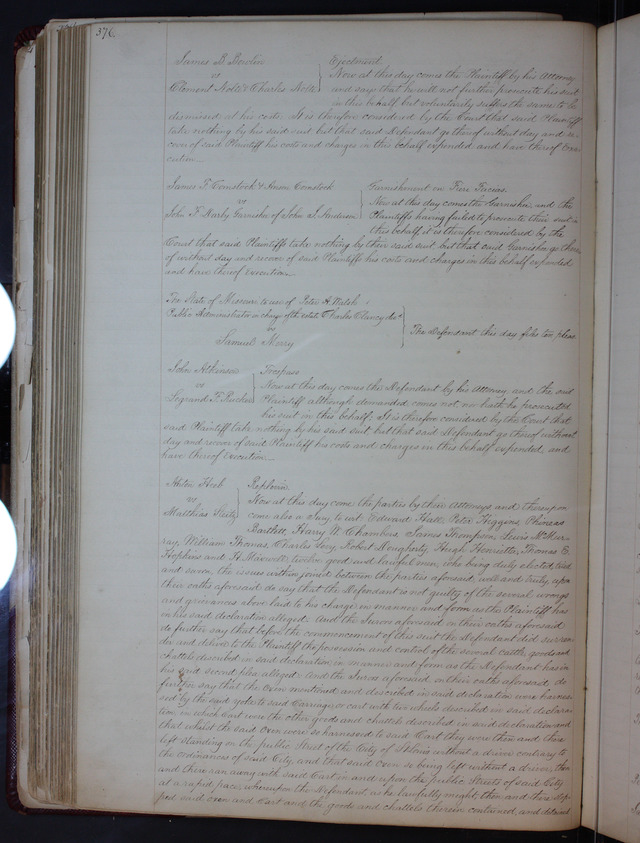 376.
James B. Bowlin
vs
Clement Nolt & Charles Nolt
Ejectment
Now at this day comes the Plaintiff by his Attorney
and says that he will not further prosecute his suit
in this behalf but voluntarily suffers the same to be
dismissed at his costs. It is therefore considered by the Court that said Plaintiff
take nothing by his said suit but that said Defendant go thereof without day and re-
cover of said Plaintiff his costs and charges in this behalf expended and have thereof Exe-
cution
James F. Comstock & Comstock
vs
John F. Darby Garnishee of John S.
Garnishment on Fieri Facias.
Now at this day comes the Garnishee, and the
Plaintiffs having failed to prosecute their suit in
this behalf it is therefore considered by the
Court that said Plaintiffs take nothing by their said suit but that said Garnishee go there-
of without day and recover of said Plaintiffs his costs and charges in this behalf expended
and have thereof execution
The State of Missouri to use of Peter H. Walsh
Public Administrator in charge of the estate Charles Clancy decd
vs
Samuel Merry
The Defendant this day files two pleas
John Atkinson
vs
Legrand F. Rucker
Trespass
Now at this day comes the Defendant by his Attorney, and the said
Plaintiff although demanded comes not nor hath he prosecuted
his suit in this behalf. It is therefore considered by the Court that
said Plaintiff take nothing by his said suit but that said Defendant go thereof without
day and recover of said Plaintiff his costs and charges in this behalf expended, and
have thereof execution
vs
Matthias Steitz
Replevin
Now at this day come the parties by their Attorneys and thereupon
come also a Jury to wit: Edward Hall, Peter Higgons, Phineas
Bartlett, Harry W. Chambers, James Thompson, Lewis McMur-
ray, William Thomas, Charles Levy, Robert Dougherty, Hugh Henrietta, Thomas E.
Hopkins and H. Maxwell twelve good and lawful men, who being duly elected tried
and sworn, the issues within joined between the parties aforesaid, well and truly, upon
their oaths aforesaid do say that the Defendant is not guilty of the several wrongs
and grievances above laid to his charge in manner and form as the Plaintiff has
in his said declaration alleged. And the Jurors aforesaid on their oaths aforesaid
do further say that before the commencement of this suit the Defendant did surren-
der and deliver to the Plaintiff the possession and control of the several cattle, goods and
chattels described in said declaration in manner and form as the Defendant has in
his said second plea alleged. And the Jurors aforesaid, on their oaths aforesaid, do
further say that the Oxen mentioned and described in said declaration were harnes-
sed by the said yoke to said Carriage or cart with two wheels described in said declara-
tion in which Cart were the other goods and chattels described in said declaration and
that whilst the said Oxen were so harnessed to said Cart they were then and there
left standing on the public Street of the City of St Louis without a driver contrary to
the ordinances of said City, and that said Oxen so being left without a driver, then
and there ran away with said Cart in and upon the public Streets of said City
at a rapid pace, whereupon the Defendant, as he lawfully might, then and there stop-
ped said oxen and Cart and the goods and chattels therein contained, and detained